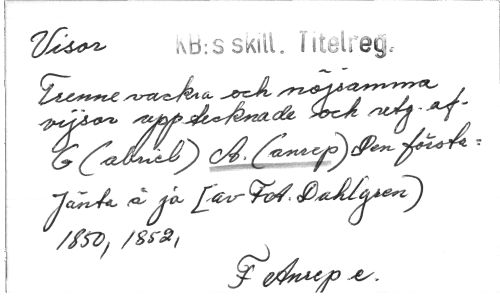 Visor KB:s skill. Titelreg.
Trenne vackra och nöjsamma
vijsor upptecknade och utg. af
G (abriel) A. (anrep) Den första:
Jänta å ja [av F.A. Dahlgren)
1850, 1852,
F Anrep e.